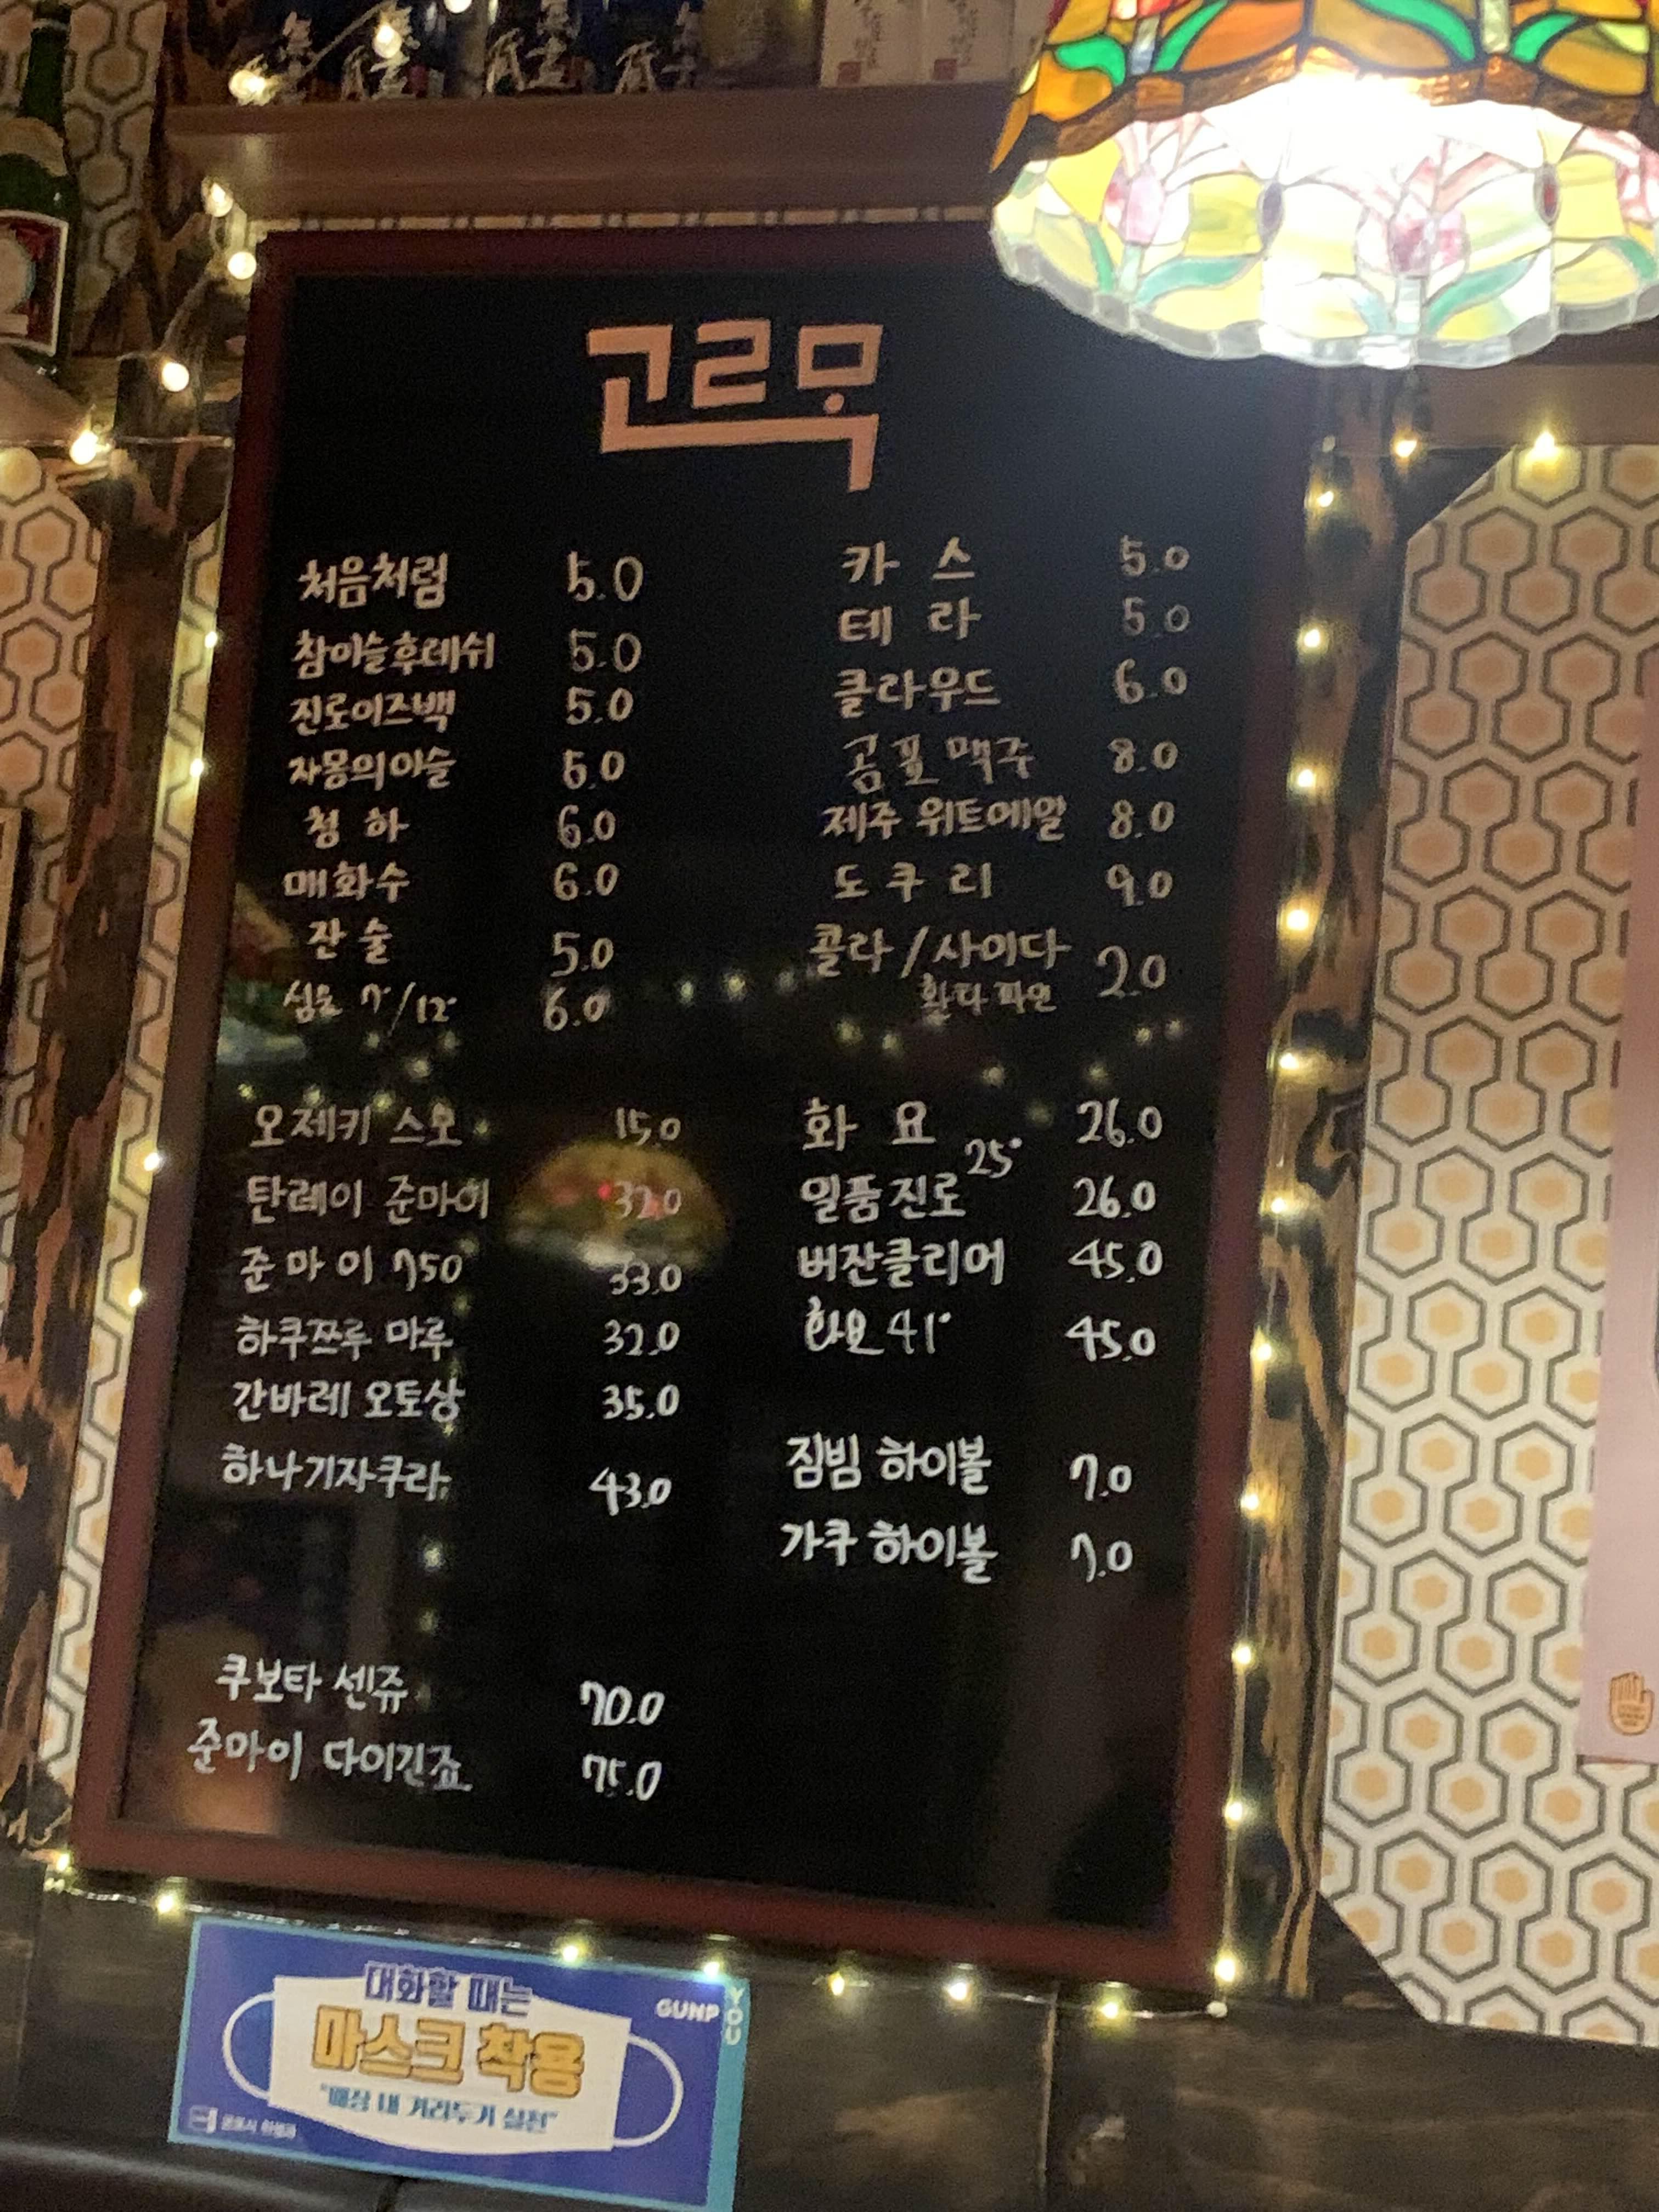 고르무
처음처럼 5.0
참이슬후레쉬 5.0
진로이즈백 5.0
자몽의이슬 5.0
청하 6.0
매화수 6.0
잔술 5.0
심술 7°/12° 6.0
카스 5.0
테라 5.0
클라우드 6.0
곰표맥주 8.0
제주 위트에일 8.0
도쿠리 9.0
콜라/사이다 2.0
환타파인
오제키 스모 15.0
탄레이 준마이 32.0
준마이 750 33.0
하쿠쯔루 마루 32.0
간바레 오토상 35.0
하나기자쿠라 43.0
화요 25° 26.0
일품진로 26.0
버잔클리어 45.0
화요 41° 45.0
짐빔 하이볼 7.0
가쿠 하이볼 7.0
쿠보타 센쥬 70.0
준마이 다이긴죠 75.0
대화할 때는
마스크 착용
내 거리두기 실천"
GUNP
YOU
군포시 위생과